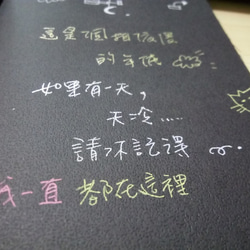 這是個相信愛
的年代
如果有一天,
天冷.....
請不忘記得
我一直 都在這裡